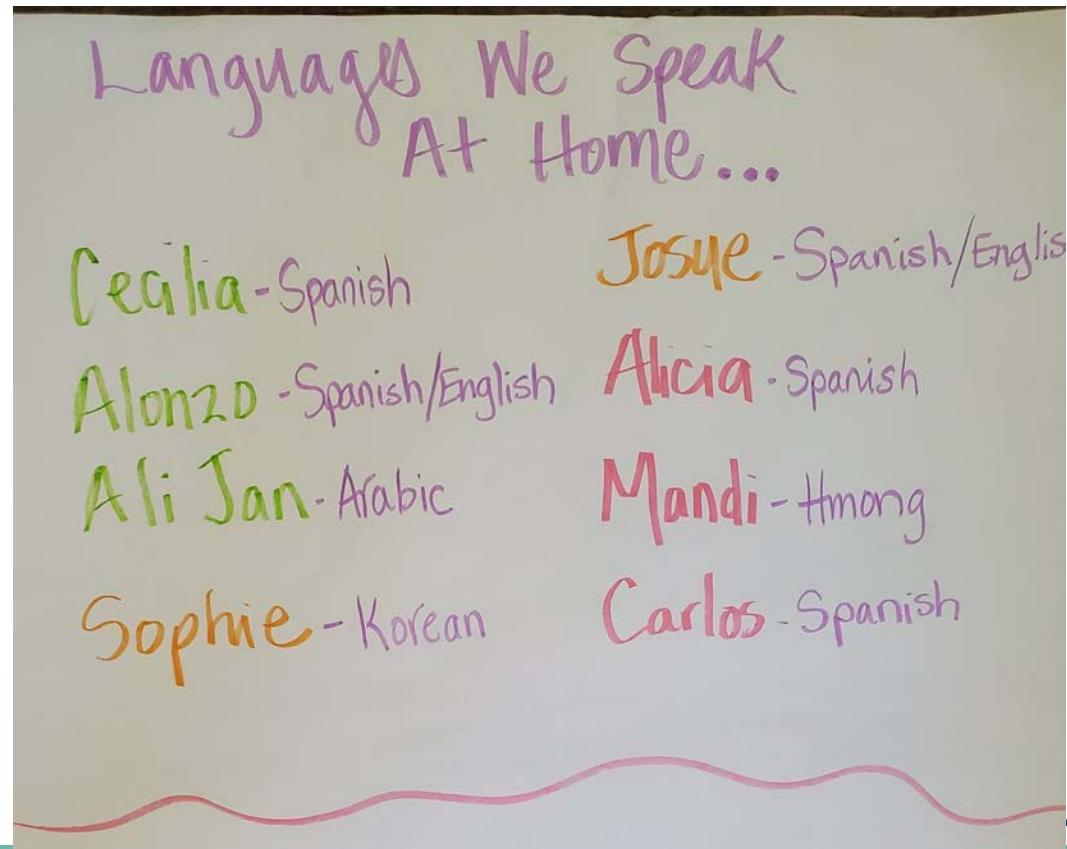 Languages We Speak
At Home...
Cecilia - Spanish
Alonzo - Spanish/English
Ali Jan - Arabic
Sophie - Korean
Josue - Spanish/Englis
Alicia - Spanish
Mandi - Hmong
Carlos - Spanish